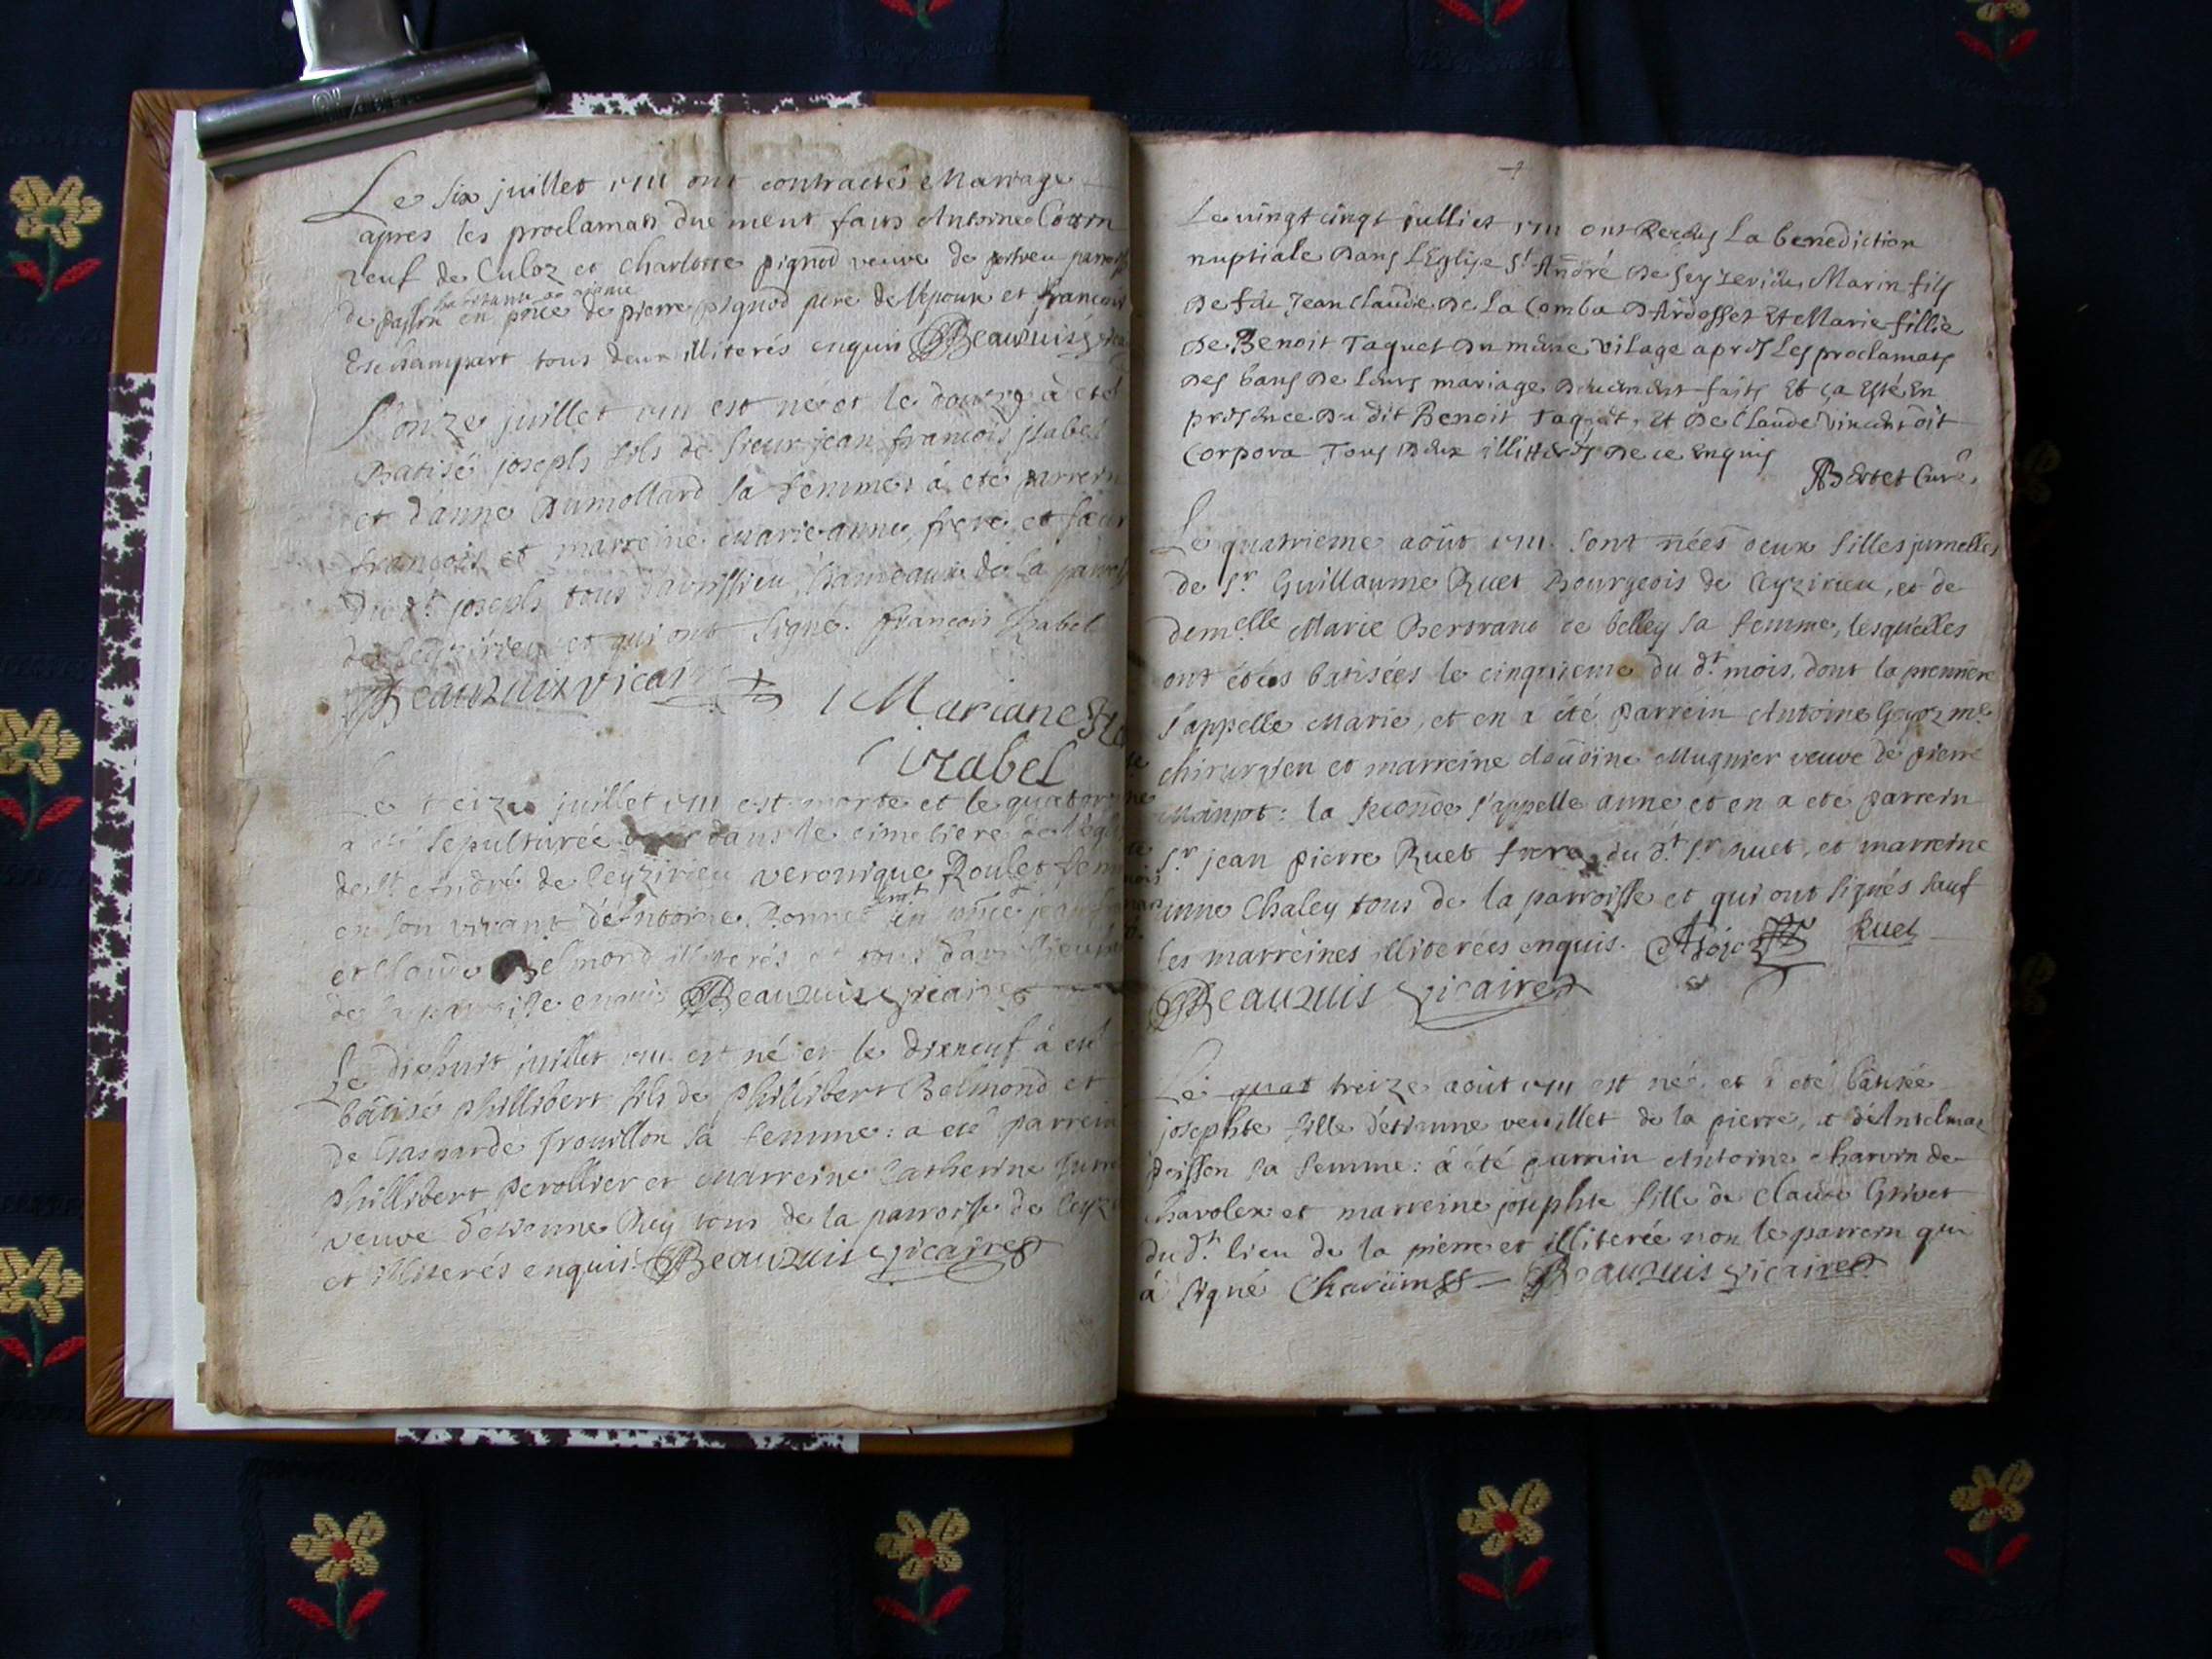 Le six juillet 1711 ont contractés Mariage
apres les proclamats duement faits Antoine
veuf de Culoz et Charlotte pignod veuve de
de en pñce de pierre pignod pere de l'epouse et françois
Eschampart tous deux illiterés enquri Beauzuis
L'onze juillet 1711 est né et le douze à eté
Batisé joseph fils de sieur jean françois jsabel
et d'anne Dumollard sa femme: à eté parrein
françois et marreine marie anne frere et sœur
du dt. joseph tous d'avrissieu, hameaux de la
de Ceyzirieu et qui ont signé. françois Isabel
Beauzuis vicaire Mariane
izabel
Le treize juillet 1711 est morte et le
a eté sepulturée dans le cimetiere de
de St. André de Ceyzirieu veronique Roulet
en son vivant d'Antoine Bonnet en pñce
et Claude Belmond illiterés et tous
de la parroisse enquis Beauzuis vicaire
Le dixhuit juillet 1711 est né et le dixneuf à eté
bâtisé phillibert fils de phillibert Belmond et
de Gasparde frouillon sa femme: a eté parrein
phillibert perollier et marreine Catherine
veuve d'etienne Rey tous de la parroisse de
et illiterés enquis. Beauzuis vicaire
Le vingt cinqt julliet 1711 ont Receus La benediction
nuptiale Dans L'Eglise St. André De Seyzerieu Marin fils
De fdu Jean Claude De La Comba D'Ardosset Et Marie fillie
De Benoit Taquet Du mème vilage apres Les proclamats
Des bans De Leurs mariage Duement faits Et ça Esté En
presence Du dit Benoit Taquet, Et De Claude vincent dit
Corpora Tous Deux illitteres De ce Enquis
Bertet Curé
Le quatrieme août 1711. sont nées deux filles jumelles
de Sr. Guillaume Ruet Bourgeois de Ceyzirieu, et de
demelle Marie Bertrand de belley sa femme, lesquelles
ont étées batisées le cinquieme du dt. mois, dont la premiere
s'appelle Marie, et en a été parrein Antoine Goyoz me
chirurgien et marreine claudine Mugnier veuve de pierre
la seconde s'appelle anne et en a eté parrein
Sr. jean pierre Ruet frere du dt. Sr. Ruet, et marreine
anne Chaley tous de la parroisse et qui ont signés sauf
les marreines illiterées enquis. Ruet
Beauzuis vicaire
Le quat treize août 1711 est né, et à eté bâtisée
josephte fille d'etienne veuillet de la pierre, et d'Antelmaz
poisson sa femme: à été parrein Antoine charvin de
chavolex et marreine josephte fille de Claude Grivet
du dt. lieu de la pierre et illiterée non le parrein qui
à signé Charuin Beauzuis vicaire